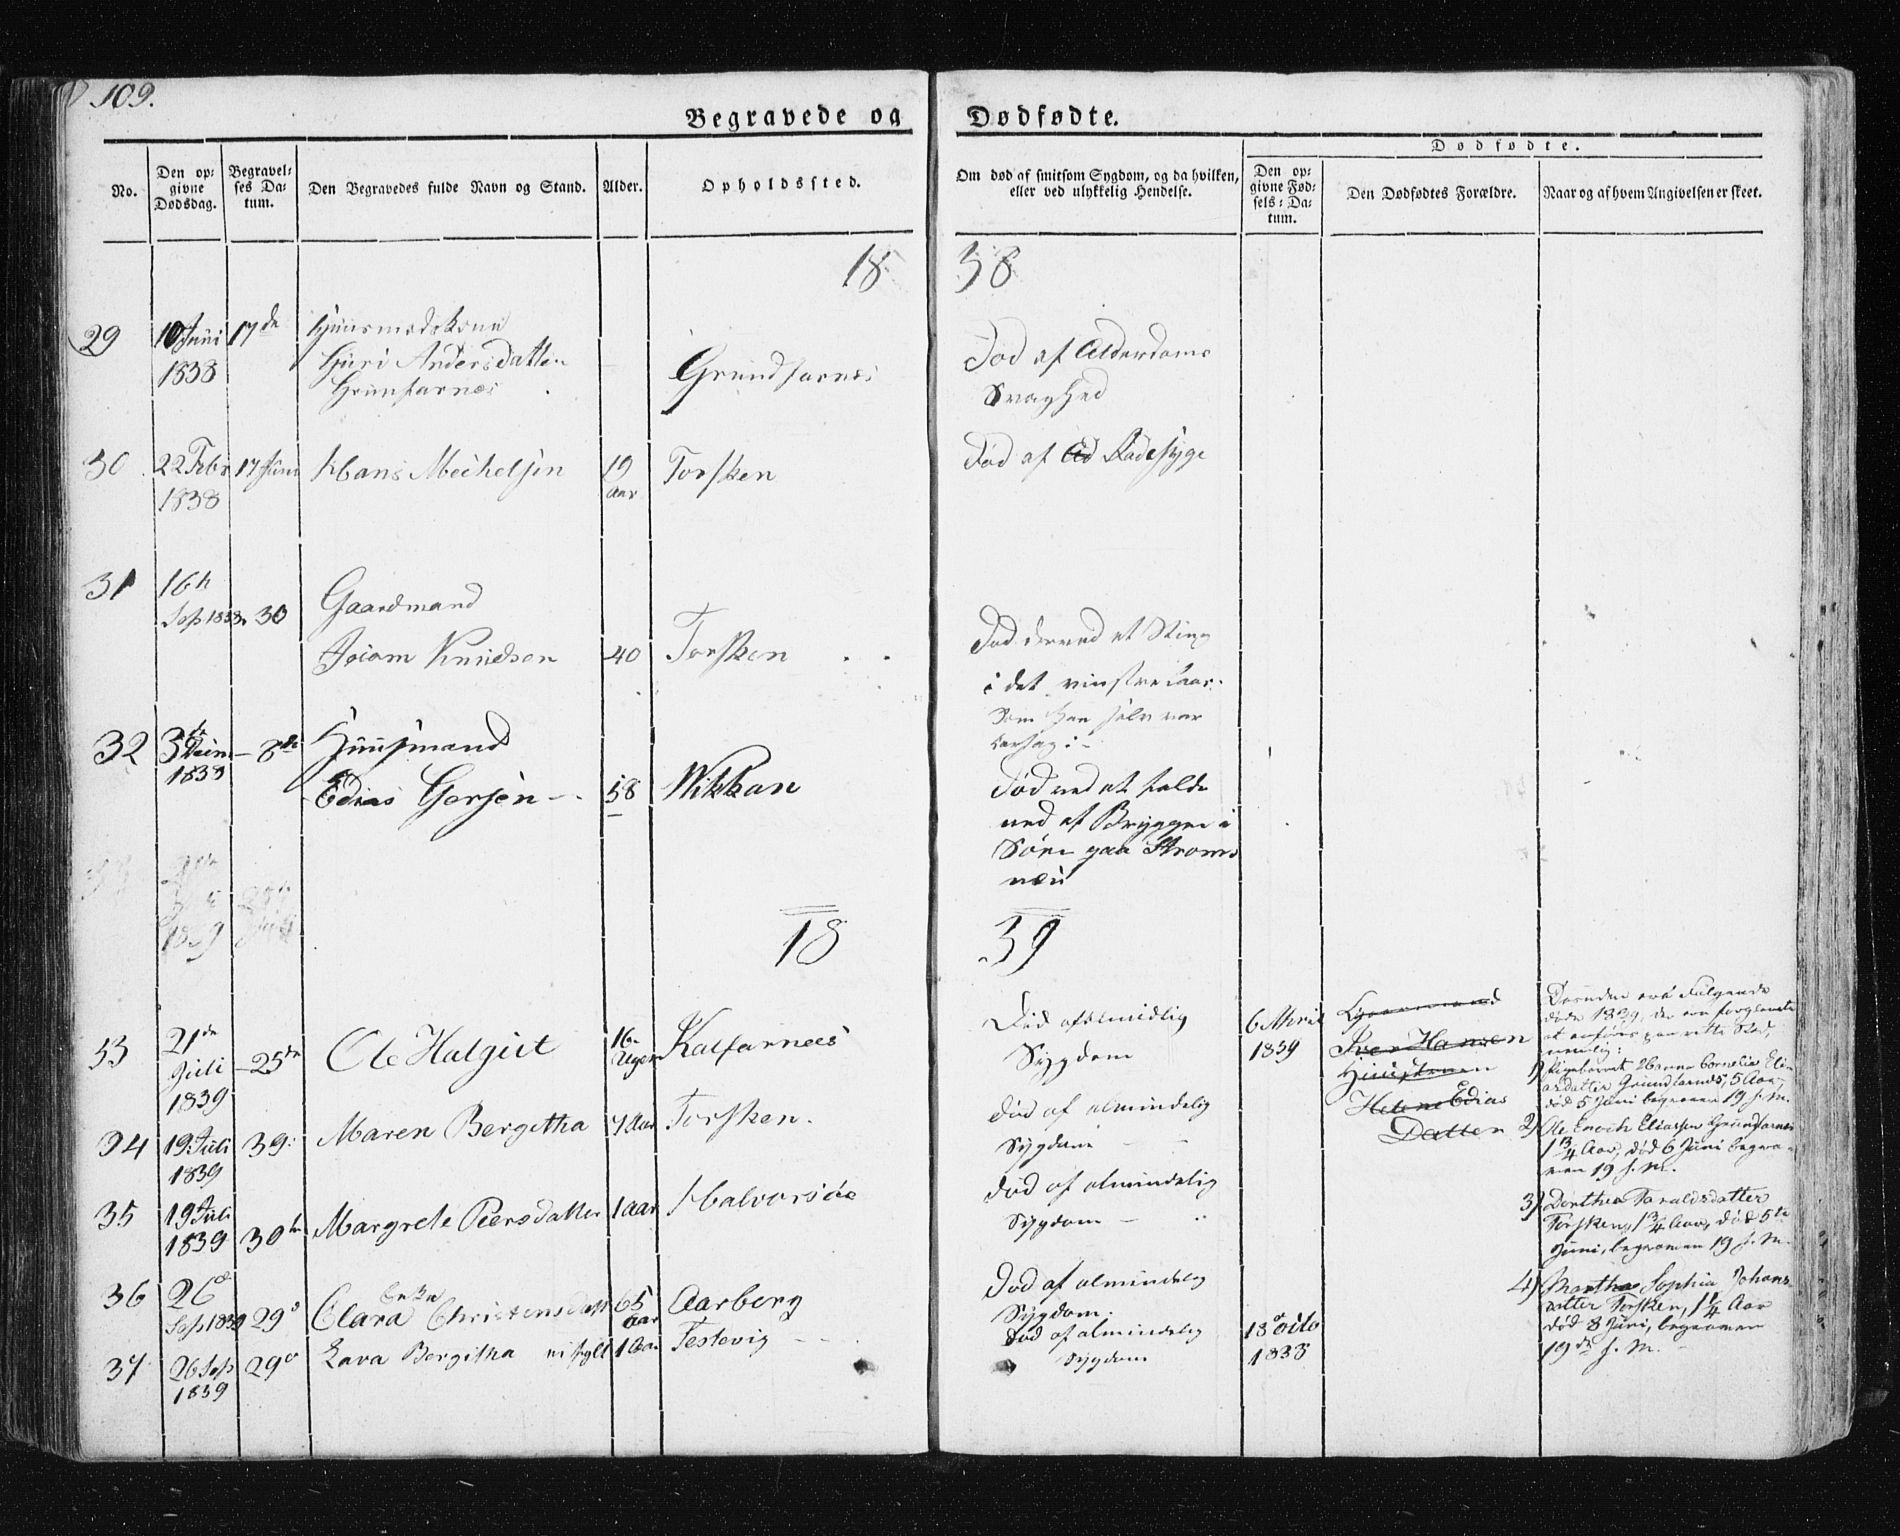 109.
Begravede og Dødfødte.
No.
Den opgivne Dødsdag.
Begravelses Datum.
Den Begravedes fulde Navn og Stand.
Alder.
Opholdssted.
Om død af smitsom Sygdom, og da hvilken, eller ved ulykkelig Hendelse.
Dødfødte.
Den opgivne Fødsels-Datum.
Den Dødfødtes Forældre.
Naar og af hvem Angivelsen er skeet.
18 38
29 10 Juni 17de Huusmodskone
1838 Guri Andersdatter Grundfarnes Død af Alderdoms
Grunfarnes Svaghed
30 22 Febr 17 Juni Hans Mechelsen 19 Torsken Død af Radesyge
1838 aar
31 16
Sep 1838 30 Gaardmand
Joram Knudsen 40 Torsken Død derved et Sting
i det vinstre Laar
som han selv var
32 3 8de Huusmand
1839 Edias Gersen 58 Wikkan Død ved at falde
ned af Bryggen i
Søen paa Strøms
næs
1839
18 39
33 21de Juli 1839 25de Ole Halgiet 16 Uger Kalfarnees Død af almidlig
Sygdom
6 April 1839
Iver Hansen
Helene Edias
Datter
34 19 Juli 1839 39 Maren Bergitha 7 Aar Torsken. Død af almindelig
Sygdom
35 19 Juli 1839 30 Margrete Peersdatter 1 aar Halvorsøe Død af almindelig
Sygdom
36 26 Sep 1839 29 Enke Clara Christensdatt 65 aar Aarberg Død af almindelig
Sygdom.
37 26 Sep 1839 29 Lava Bergitha ni fyllt 1 Aar Festevig Død af almindelig
Sygdom
18 Octo
1838
Desuden ere Følgende
døde 1839, der ere forglemte
at anføres paa rette Sted,
nemlig:
1) Pigebarnet Hanna Cornelia Eli-
asdatter Grundfarnes, 5 Aar,
død 5 Juni begraven 19 s. M.
2) Ole Enoch Eliassen Grundfarnes
1 3/4 Aar, død 6 Juni begra-
ven 19 s. M.
3) Dorthea Taraldsdatter
Torsken, 1 3/4 Aar, død 5te
Juni, begraven 19 s. M.
4) Martha Sophia Johans
datter Torsken, 1 1/4 Aar
død 8 Juni, begraven
19de s. M.